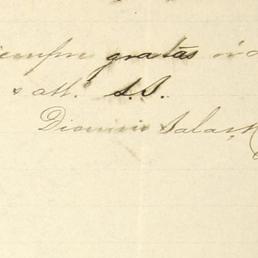 siempre gratas ó
s att. S.S.
Dionisio Salas